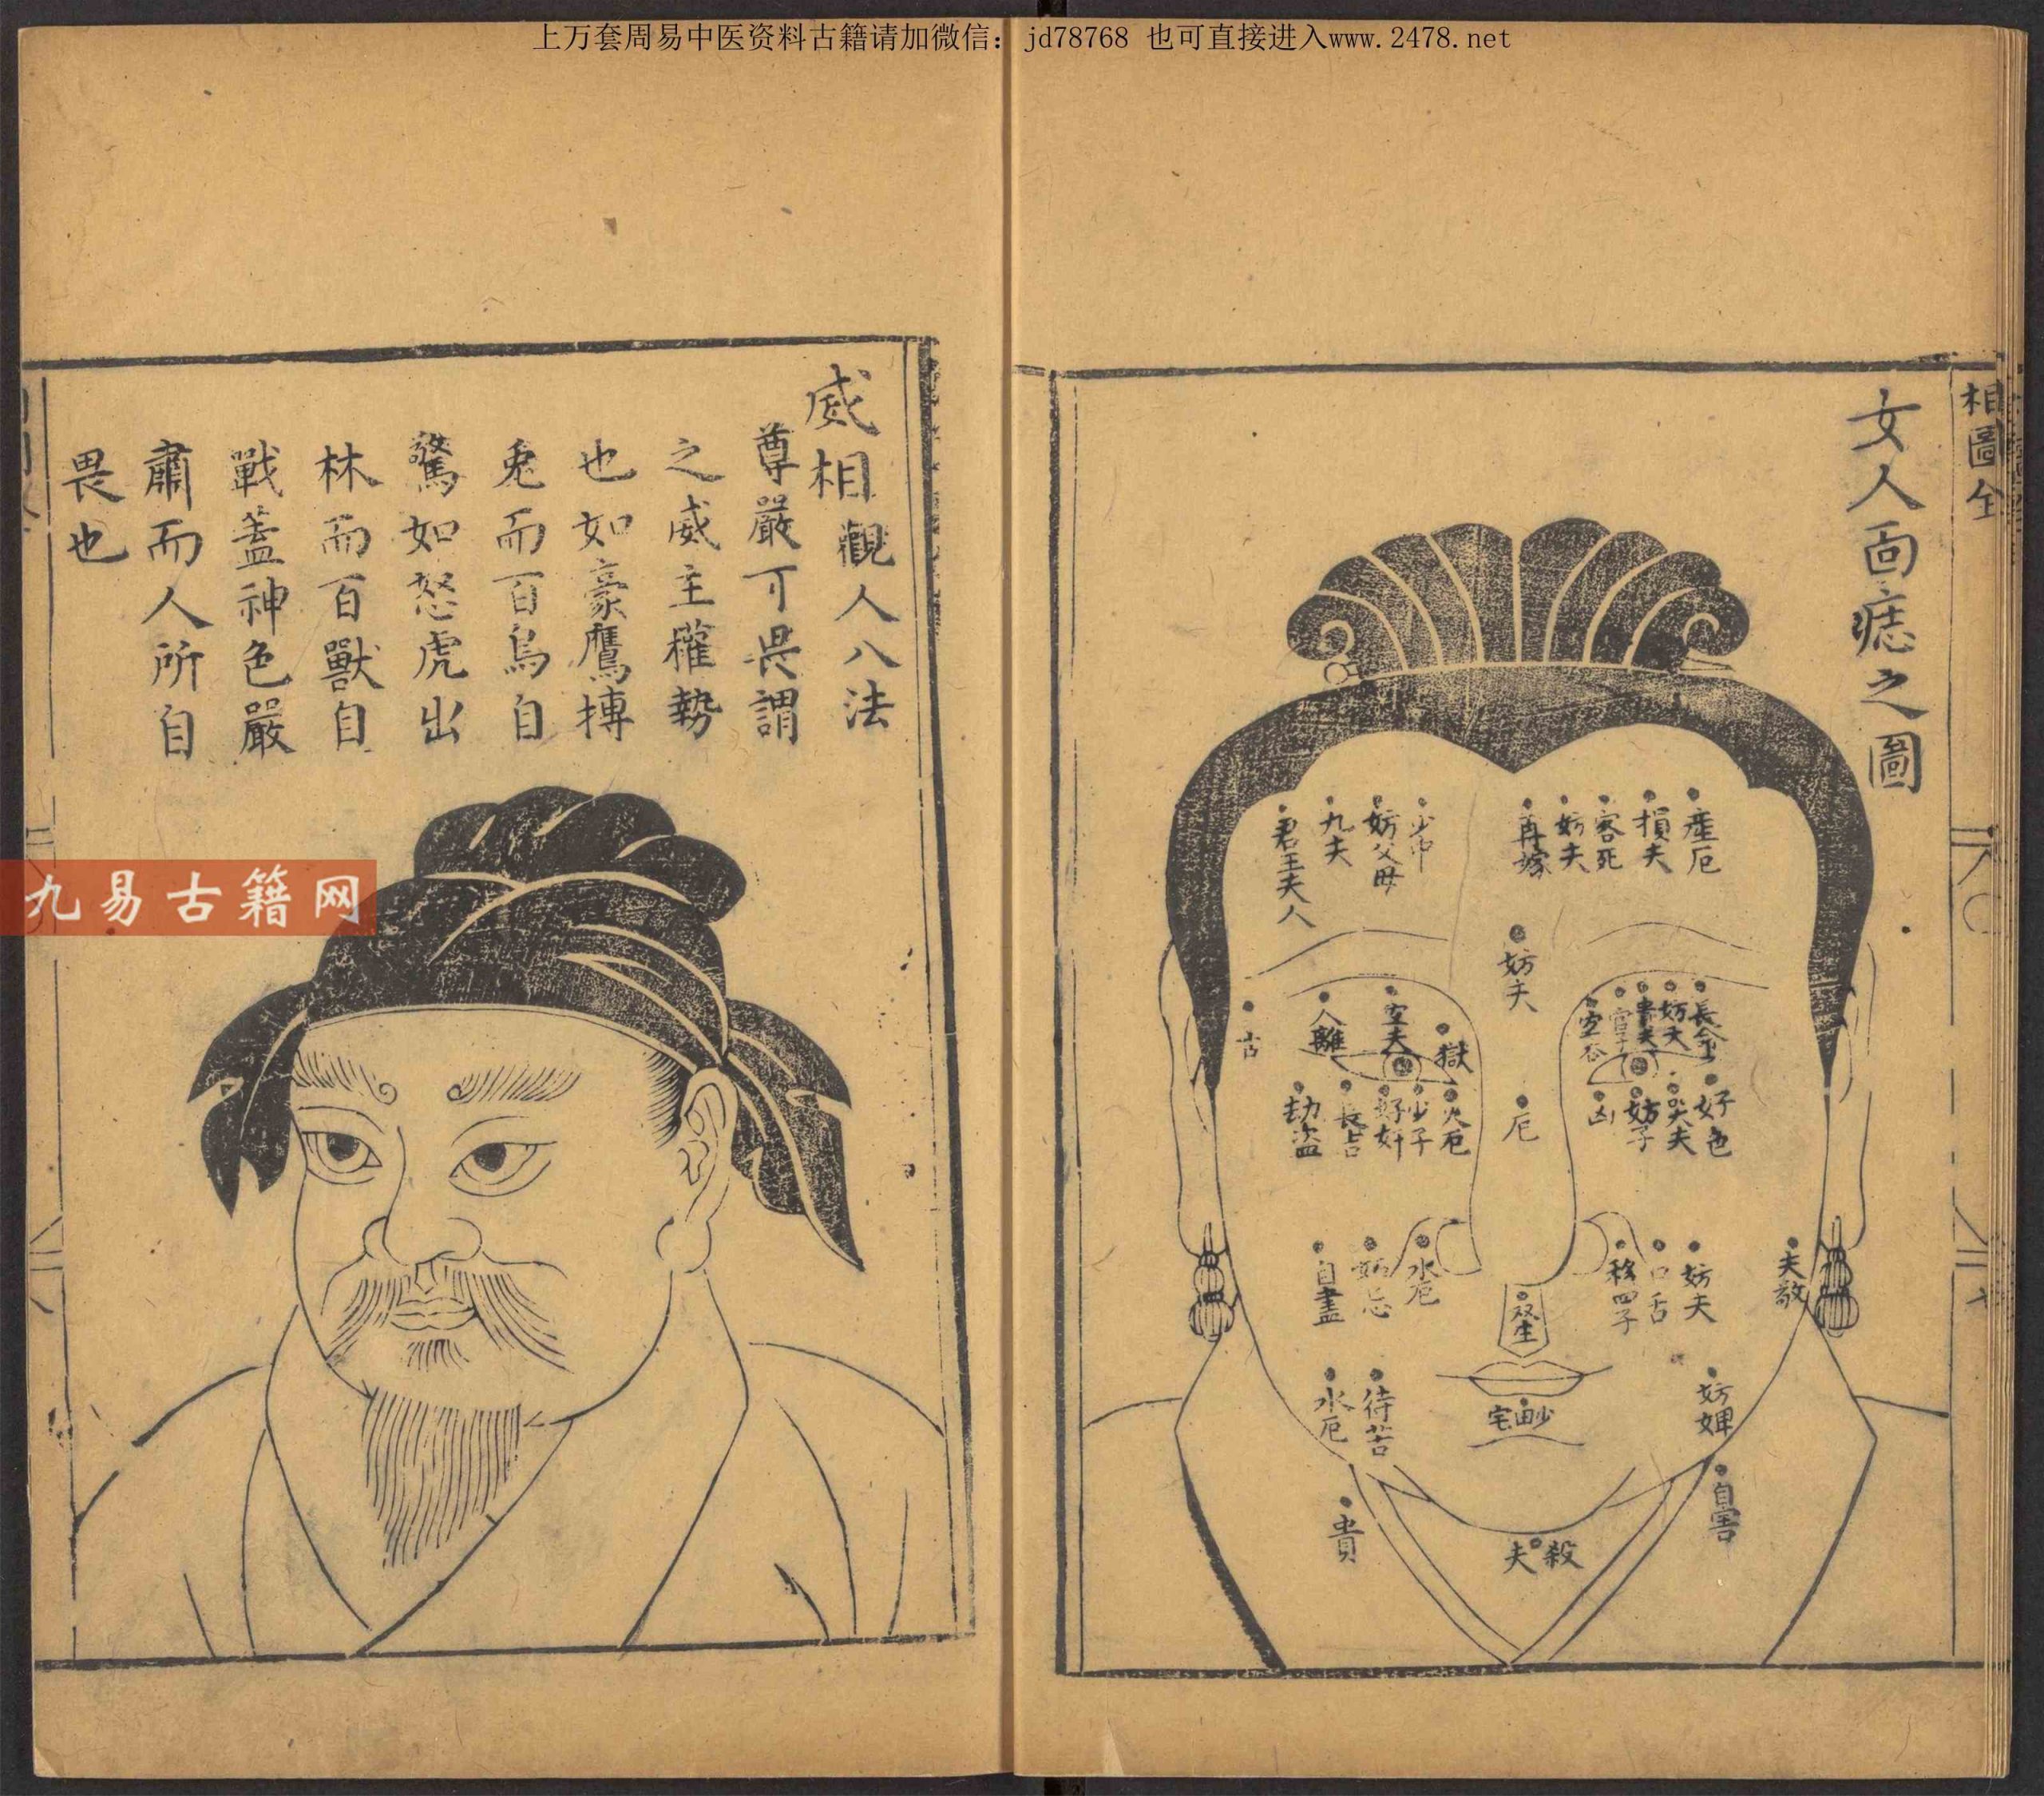 上万套周易中医资料古籍请加微信：jd78768 也可直接进入www.2478.net
相圖全
女人面痣之圖
產厄
損夫
客死
妨夫
再嫁
少巾
妨父母
九夫
君王夫人
妨夫
長命
妨夫
害夫
獄
妨夫
人離
吉
好色
哭夫
妨子
凶
厄
火厄
少子
好奸
長吉
劫盜
夫敬
妨夫
口舌
殺四子
雙生
水厄
妬忌
自盡
少田宅
妨婢
待苦
水厄
自害
殺夫
貴
威相 觀人八法
尊嚴可畏謂
之威主權勢
也如豪鷹搏
兎而百鳥自
驚如怒虎出
林而百獸自
戰蓋神色嚴
肅而人所自
畏也
九易古籍网